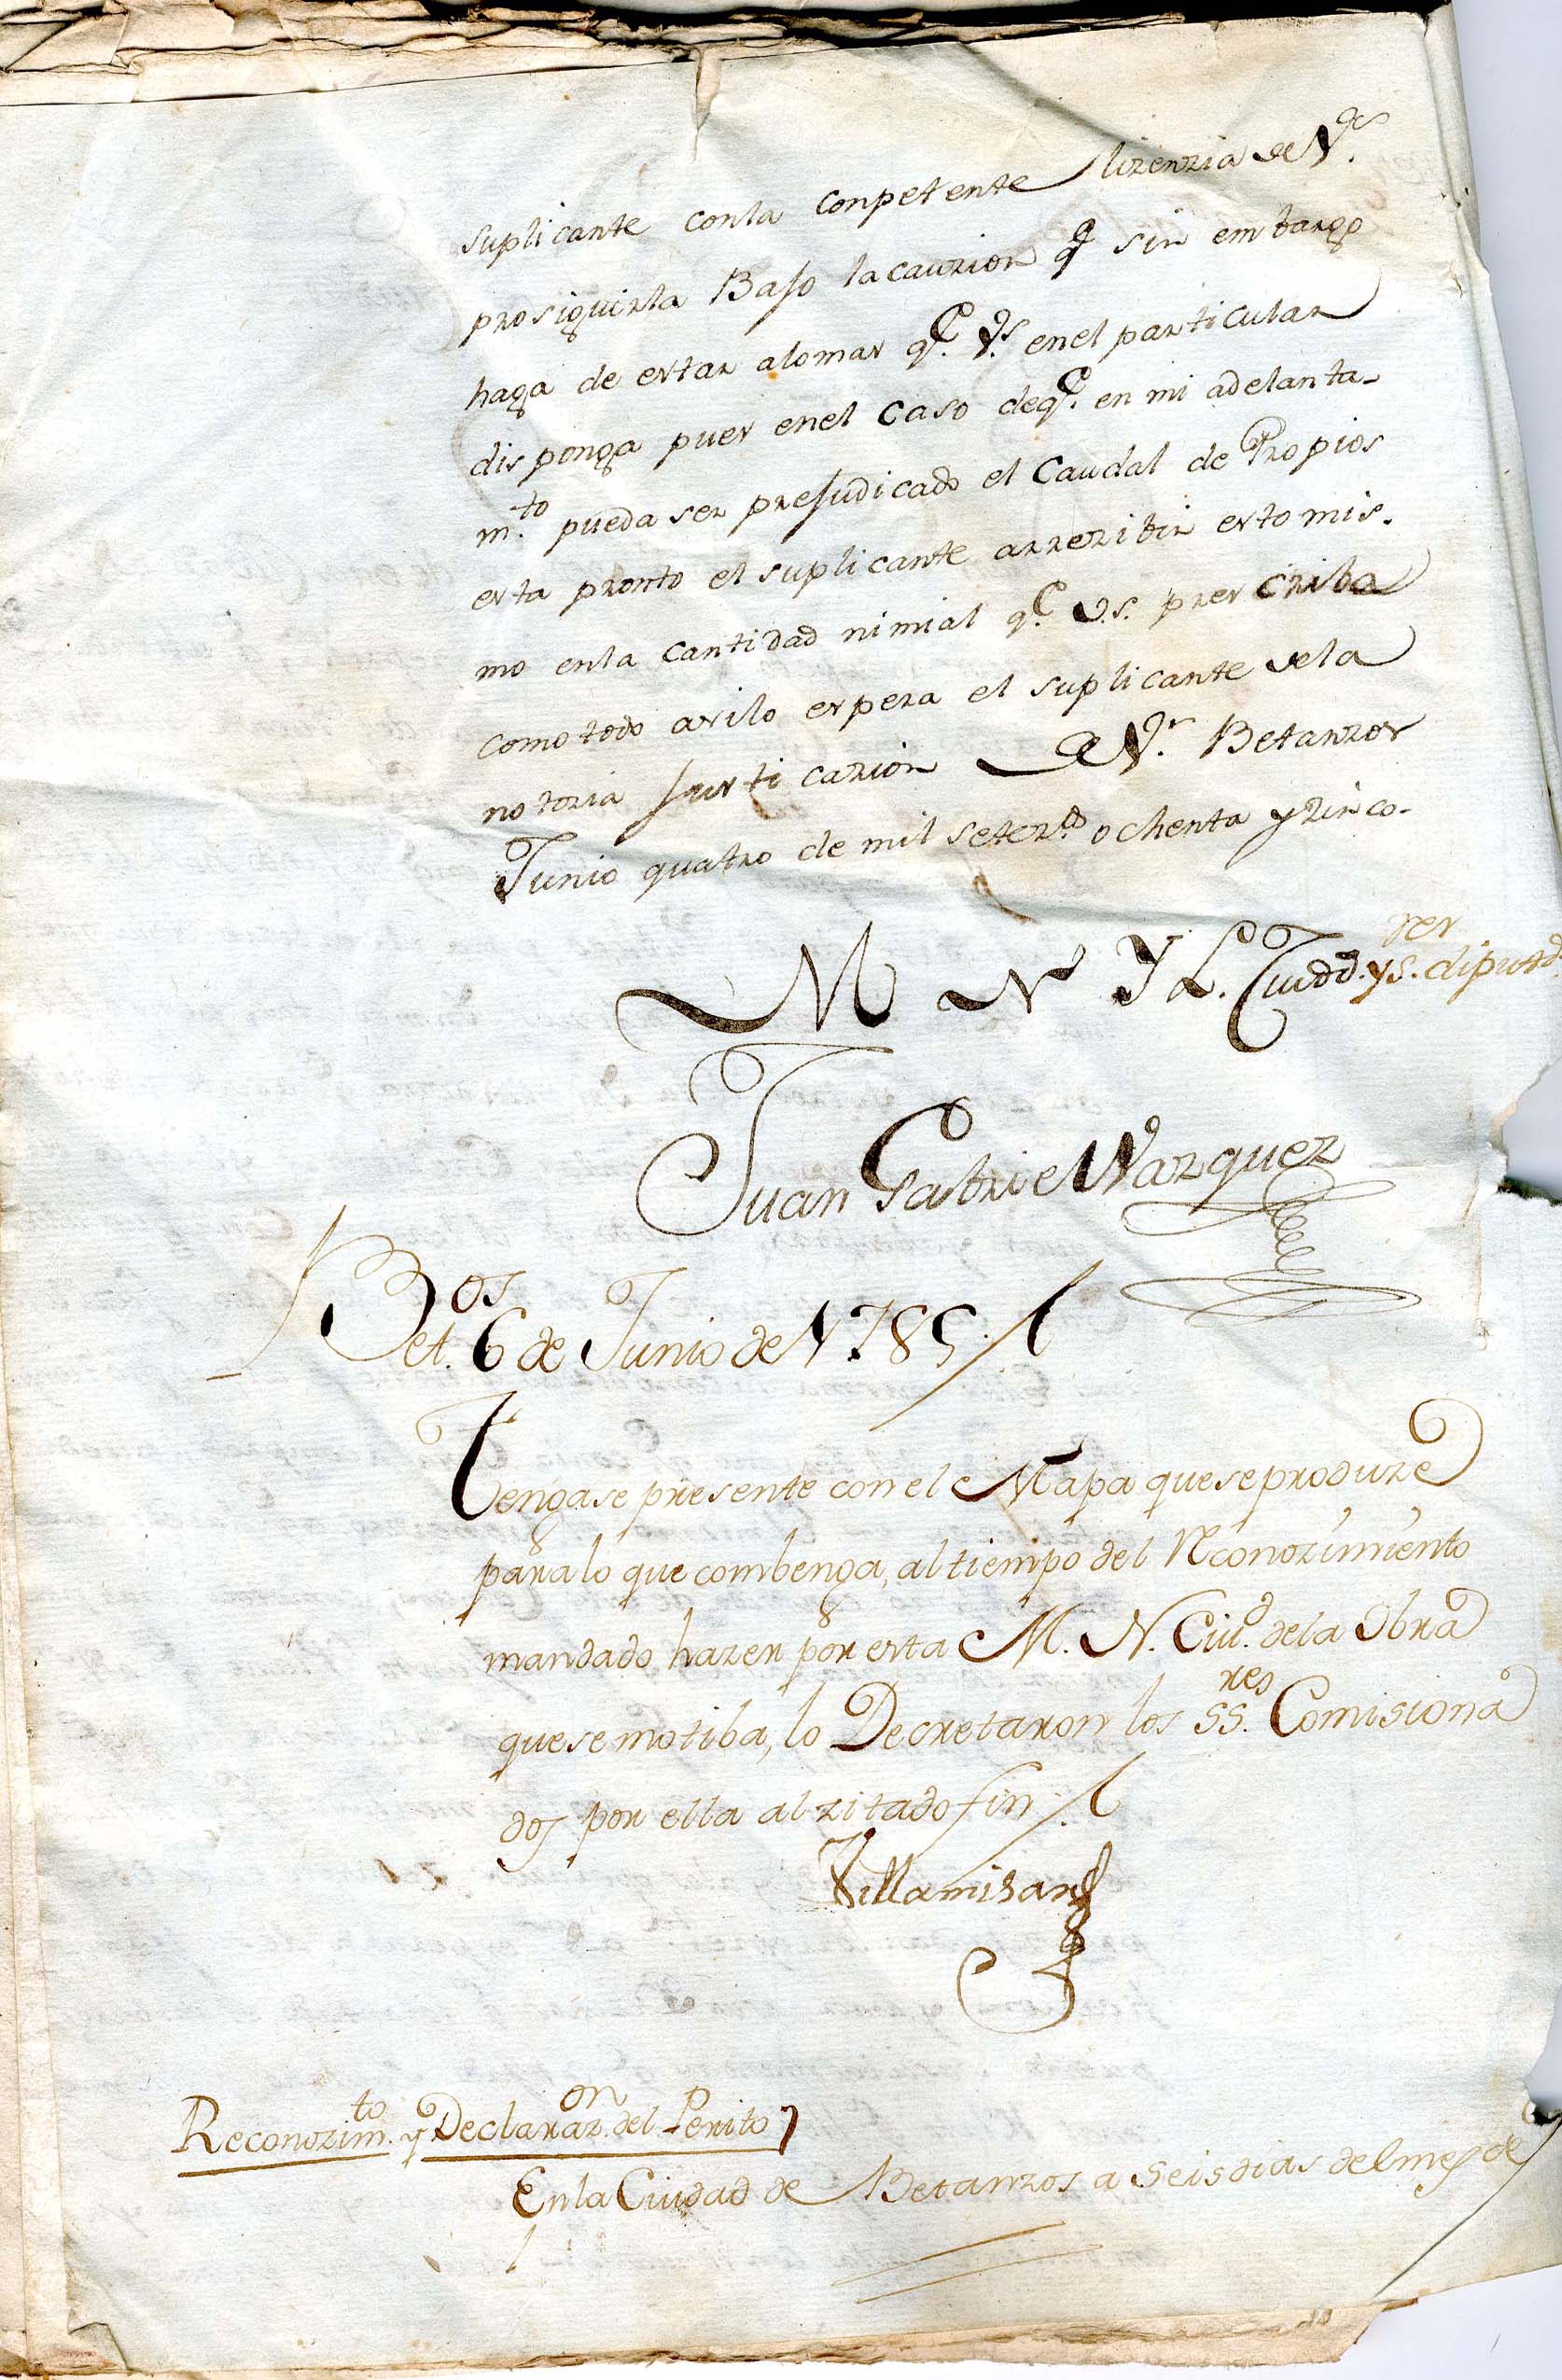 suplicante conla conpetente lizenzia de V.s
prosiguirla Bajo la cauzion q sin embargo
haga de estar alomas q.e V.s enel particular
disponga pues enel Caso deq.e en mi adelanta-
m.to pueda ser prejudicado el Caudal de Propios
esta pronto el suplicante arrezibir esto mis-
mo enla Cantidad nimial q.e V.S. prescriba
como todo asilo espera el suplicante dela
notoria justicazion de V.s Betanzos
Junio quatro de mil setez.to ochenta y zinco-
M N Y L. Ciudd. y S.res diputd.
Juan Gabriel Vazquez
Bet.os 6 de Junio de 1785.
Tengase presente con el Mapa que se produze
para lo que combenga, al tiempo del Rconozimiento
mandado hazer por esta M. N. Ciu.d dela Obra
que se motiba, lo Decretaron los SS.res Comisiona
dos por ella al zitado fin
Villamisar
Reconozim.to y Declaraz.on del Perito
En la Ciudad de Betanzos a seis dias del mes de